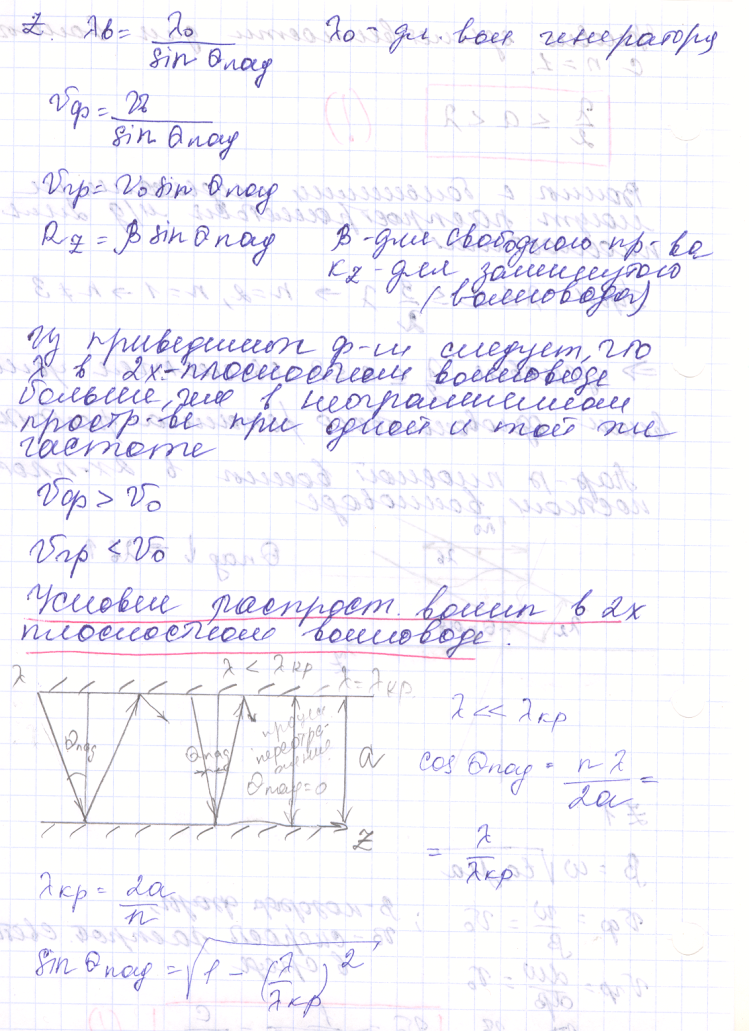 Z. λв = λ₀ / sin Θпад     λ₀ - дл. волн генератора
Vф = V₀ / sin Θпад
Vгр = V₀ sin Θпад
kz = β sin Θпад     β - для свободного пр-ва
kz - для замкнутого
(волновода)
Из приведенных ф-л следует, что
λ в 2х-плоскостном волноводе
больше, чем в неограниченном
простр-ве при одной и той же
частоте
Vф > V₀
Vгр < V₀
Условия распрост. волны в 2х
плоскостном волноводе.
λ     λ < λкр     λ = λкр
Θпад     Θпад     Θпад = 0     a
Z
λ << λкр
cos Θпад = nλ / 2a =
= λ / λкр
λкр = 2a / n
sin Θпад = √(1 - (λ / λкр)²)